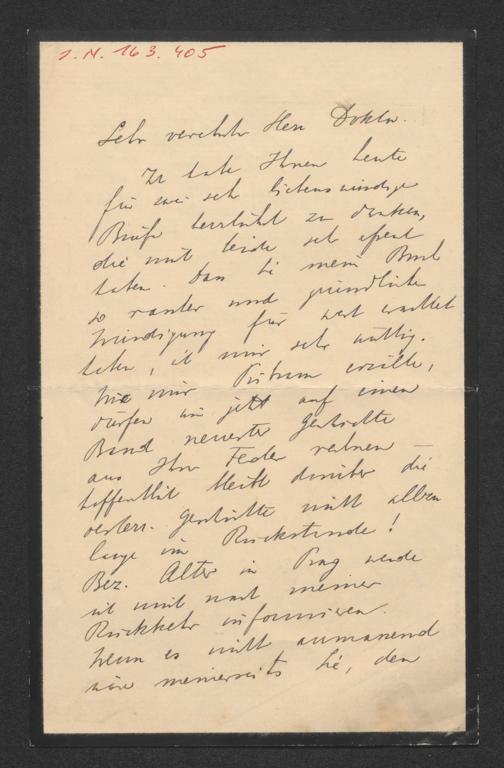 J. N. 163.405
Sehr verehrter Herr Doktor.
Ich habe Ihnen heute
für zwei sehr liebenswürdige
Briefe herzlichst zu danken,
die mich beide sehr erfreut
haben. Dass Sie mein Buch
so rascher und gründlicher
Würdigung für wert erachtet
haben, ist mir sehr wichtig.
Wie mir Pribram erzählte,
dürfen wir jetzt auf einen
Band neuester Geschichte
aus Ihrer Feder rechnen –
hoffentlich bleibt darüber die
oesterr. Geschichte nicht allzu
lange im Rückstande!
Bez. Alter in Prag werde
ich mich nach meiner
Rückkehr informieren.
Wenn es nicht anmassend
wäre meinerseits Sie, den